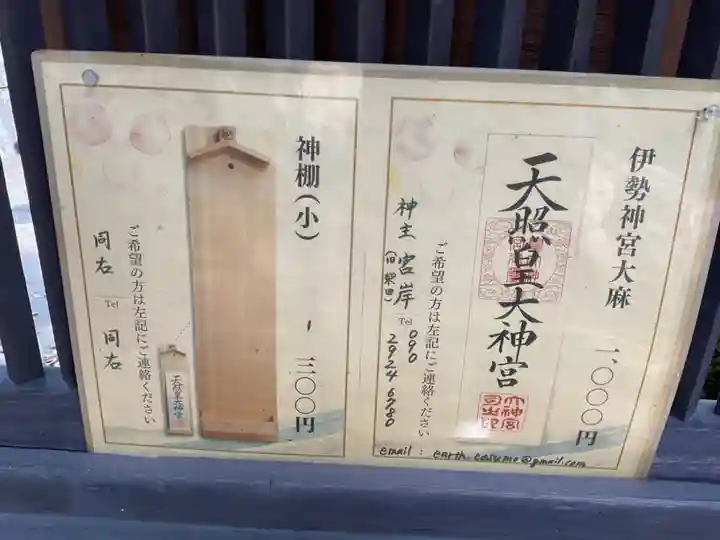 伊勢神宮大麻
一、〇〇〇円
天照皇大神宮
ご希望の方は左記にご連絡ください
神主 宮岸
(旧 柴田)
Tel 090 2924 6780
email : earth.easume@gmail.com
神棚(小)
三〇〇円
ご希望の方は左記にご連絡ください
同右 Tel 同右
天照皇大神宮